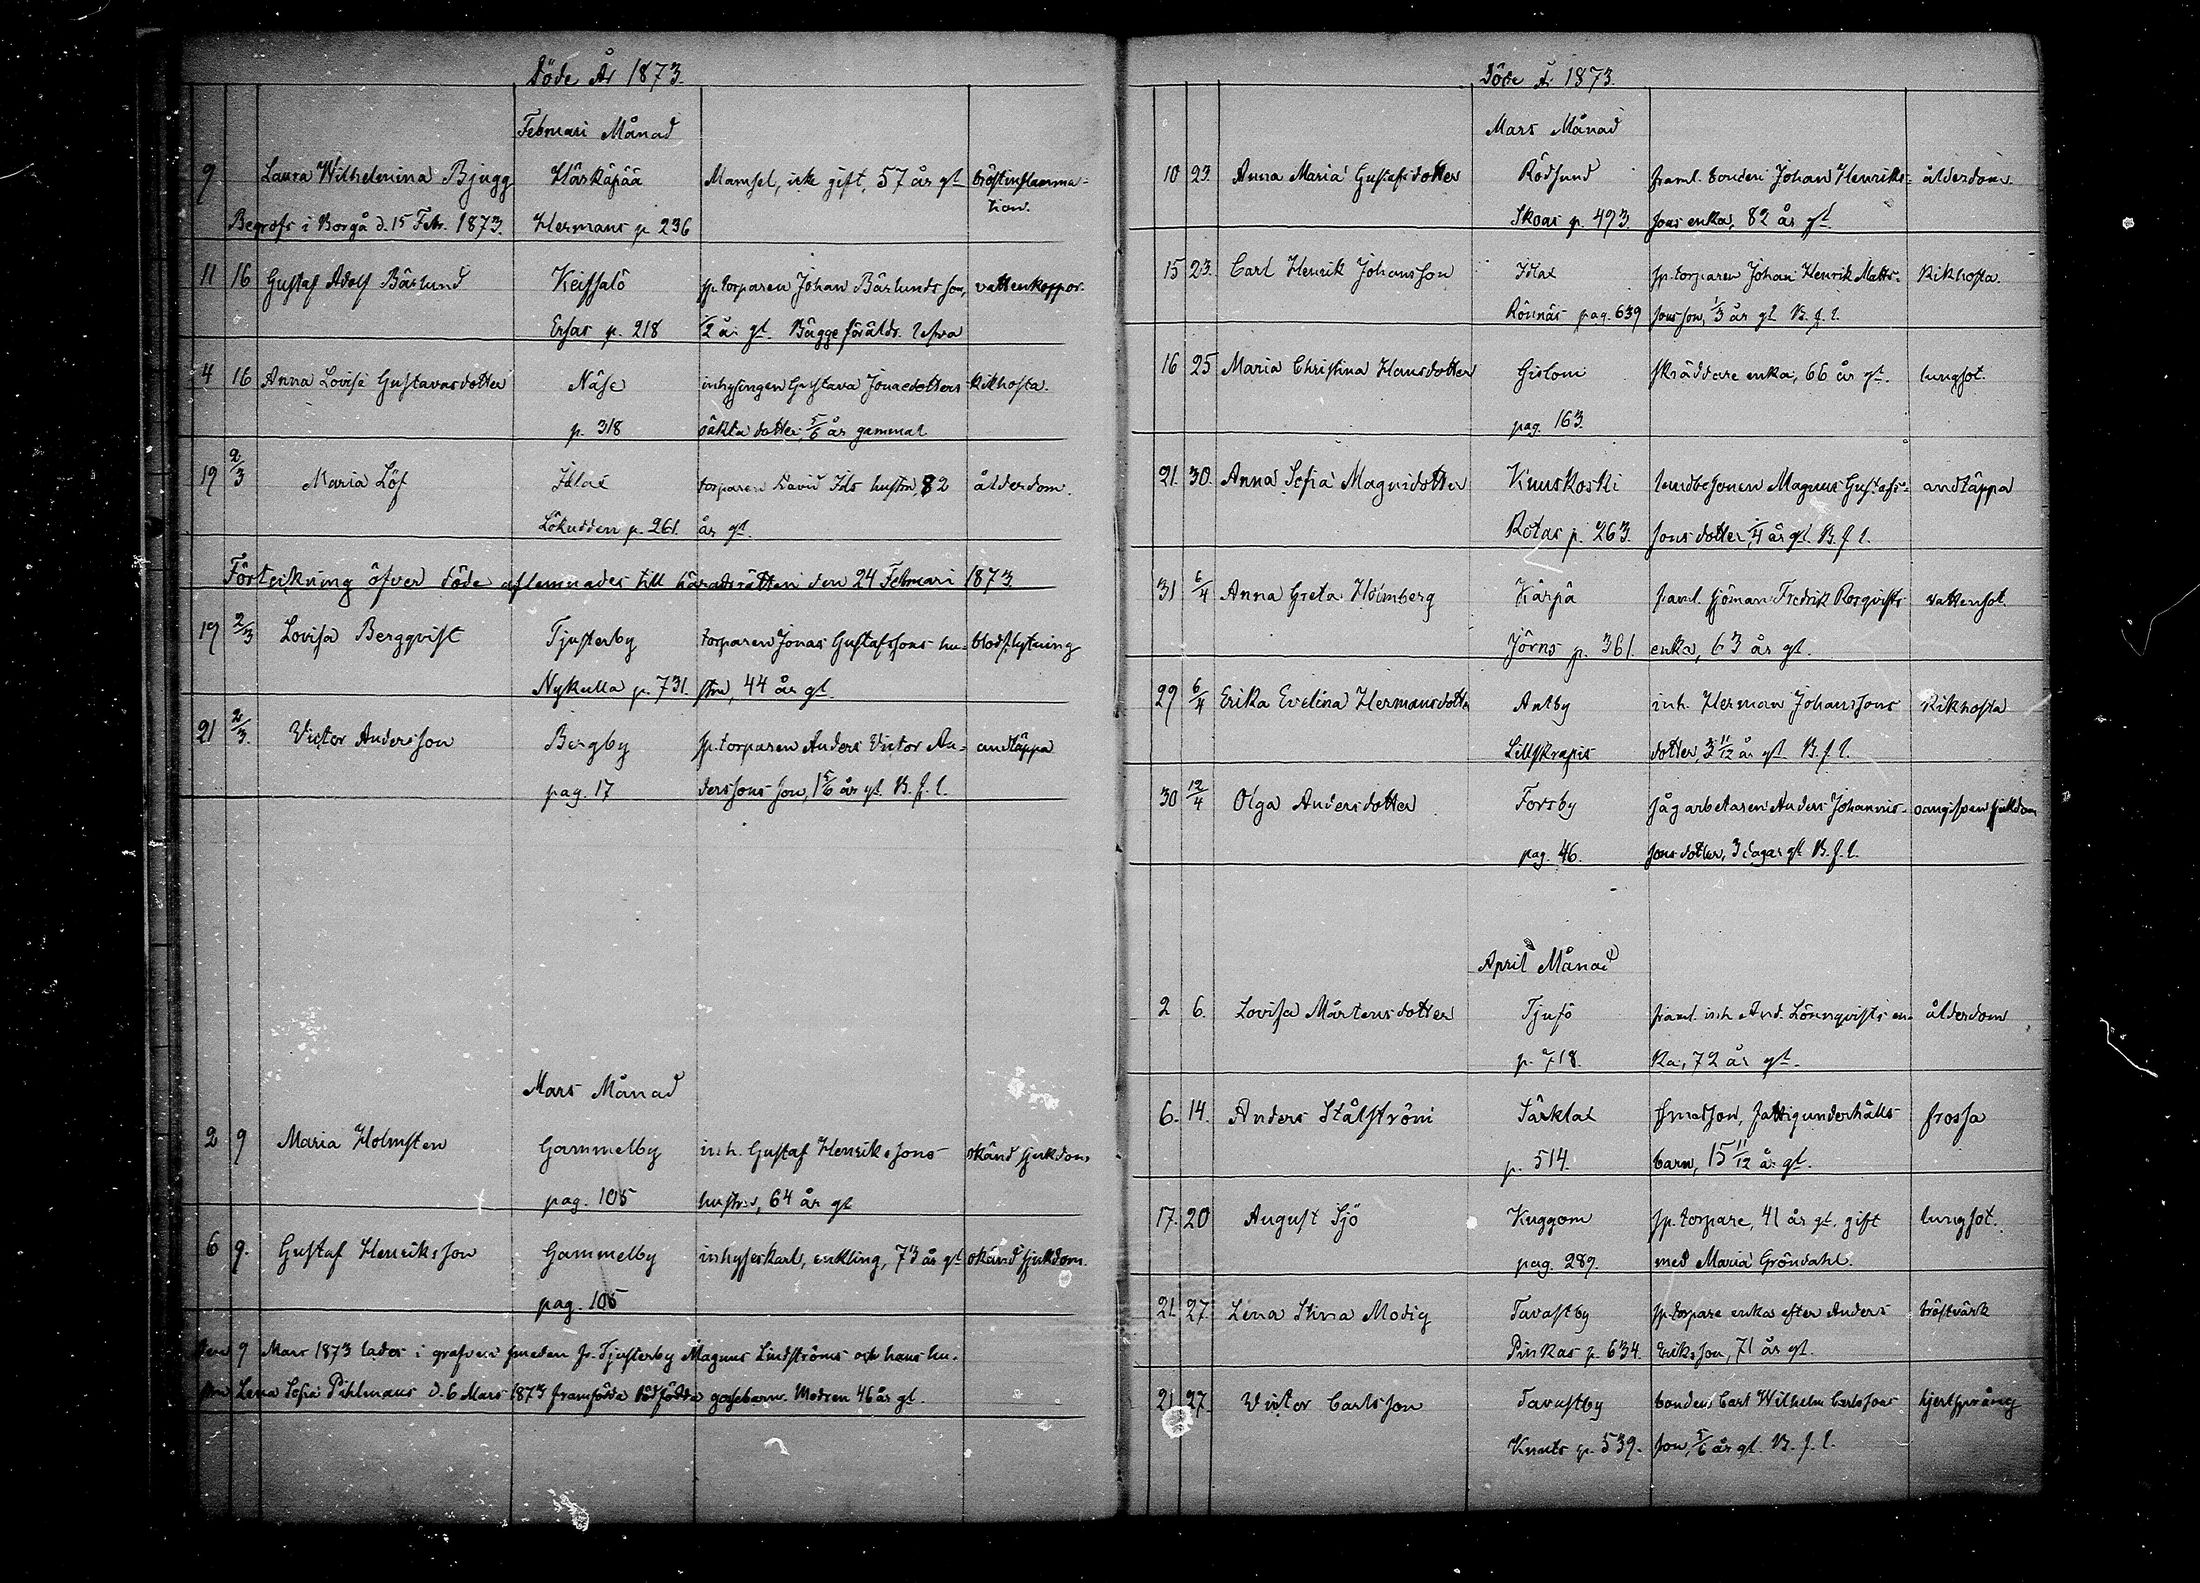 Döde År 1873.
Februari Månad
9 Laura Wilhelmina Bjugg Härkäpää Mamsel, icke gift, 57 år gl bröstinflamma-
tion.
Begrofs i Borgå d. 15 Febr. 1873. Hermans p. 236
11 16 Gustaf Adolf Bärlund Keissalö sp. torparen Johan Bärlunds son, vattenkoppor.
Ersas p. 218 1/2 år gl. Bägge föräldr. lefva
4 16 Anna Lovisa Gustavasdotter Näse inhysingen Gustava Jonaedotters kikhosta.
p. 318 oäkta dotter, 5/6 år gammal
19 2/3 Maria Löf Idlax torparen David Ids hustru, 82 ålderdom.
Lökudden p. 261. år gl.
Förteckning öfver döde aflemnades till häradsrätten den 24 Februari 1873
19 2/3 Lovisa Bergqvist Tjusterby torparen Jonas Gustafssons hu- blodstörtning
Nykulla p. 731. stru, 44 år gl.
21 2/3. Victor Andersson Bergby sp. torparen Anders Victor An- andtäppa
pag. 17 derssons son, 1 5/6 år gl. B. f. l.
Mars Månad
2 9 Maria Holmsten Gammelby inh. Gustaf Henrikssons okänd sjukdom
pag. 105 hustru, 64 år gl
6 9. Gustaf Henriksson Gammelby inhyseskarl, enkling, 73 år gl okänd sjukdom.
pag. 105
Den 9 Mars 1873 lades i grafven smeden fr. Tjusterby Magnus Lindströms och hans hu-
stru Lena Sofia Pihlmans d. 6 Mars 1873 framfödda dödfödda gossebarn. Modren 46 år gl.
Döde År 1873.
Mars Månad
10 23 Anna Maria Gustafsdotter Rödsund framl. bonden Johan Henriks- ålderdom.
Skoas p. 493. sons enka, 82 år gl.
15 23. Carl Henrik Johansson Idlax sp. torparen Johan Henrik Matts- kikhosta.
Rönnäs pag. 639 sons son, 1/3 år gl. B. f. l.
16 25 Maria Christina Hansdotter Gislom skräddare enka, 66 år gl. lungsot.
pag. 163.
21. 30. Anna Sofia Magnidotter Kuuskoski landbosonen Magnus Gustafs- andtäppa
Rotas p. 263. sons dotter, 1/4 år gl. B. f. l.
31 6/4 Anna Greta Holmberg Kärpä framl. sjöman Fredrik Rosqvists vattensot.
Jörns p. 361. enka, 63 år gl.
29 6/4 Erika Evelina Hermansdotter Antby inh. Herman Johanssons kikhosta
Lillskrapis dotter, 3 11/12 år gl. B. f. l.
30 12/4 Olga Andersdotter Forsby sågarbetaren Anders Johannis- oangifven sjukdom
pag. 46. sons dotter, 3 dagar gl. B. f. l.
April Månad
2 6. Lovisa Mårtensdotter Tjusö framl. inh. And. Lönnqvists en- ålderdom
p. 718. ka, 72 år gl.
6. 14. Anders Stålström Särklax smedson, fattigunderhålls- frossa
p. 514. barn, 15 11/12 år gl.
17. 20 August Sjö Kuggom sp. torpare, 41 år gl. gift lungsot.
pag. 289. med Maria Gröndahl.
21. 27. Lena Stina Modig Tavastby sp. torpare enka efter Anders bröstvärk
Pinkas p. 634. Eriksson, 71 år gl.
21 27. Victor Carlsson Tavastby bonden Carl Wilhelm Carlssons hjertsprång
Knuts p. 539. son, 5/6 år gl. B. f. l.